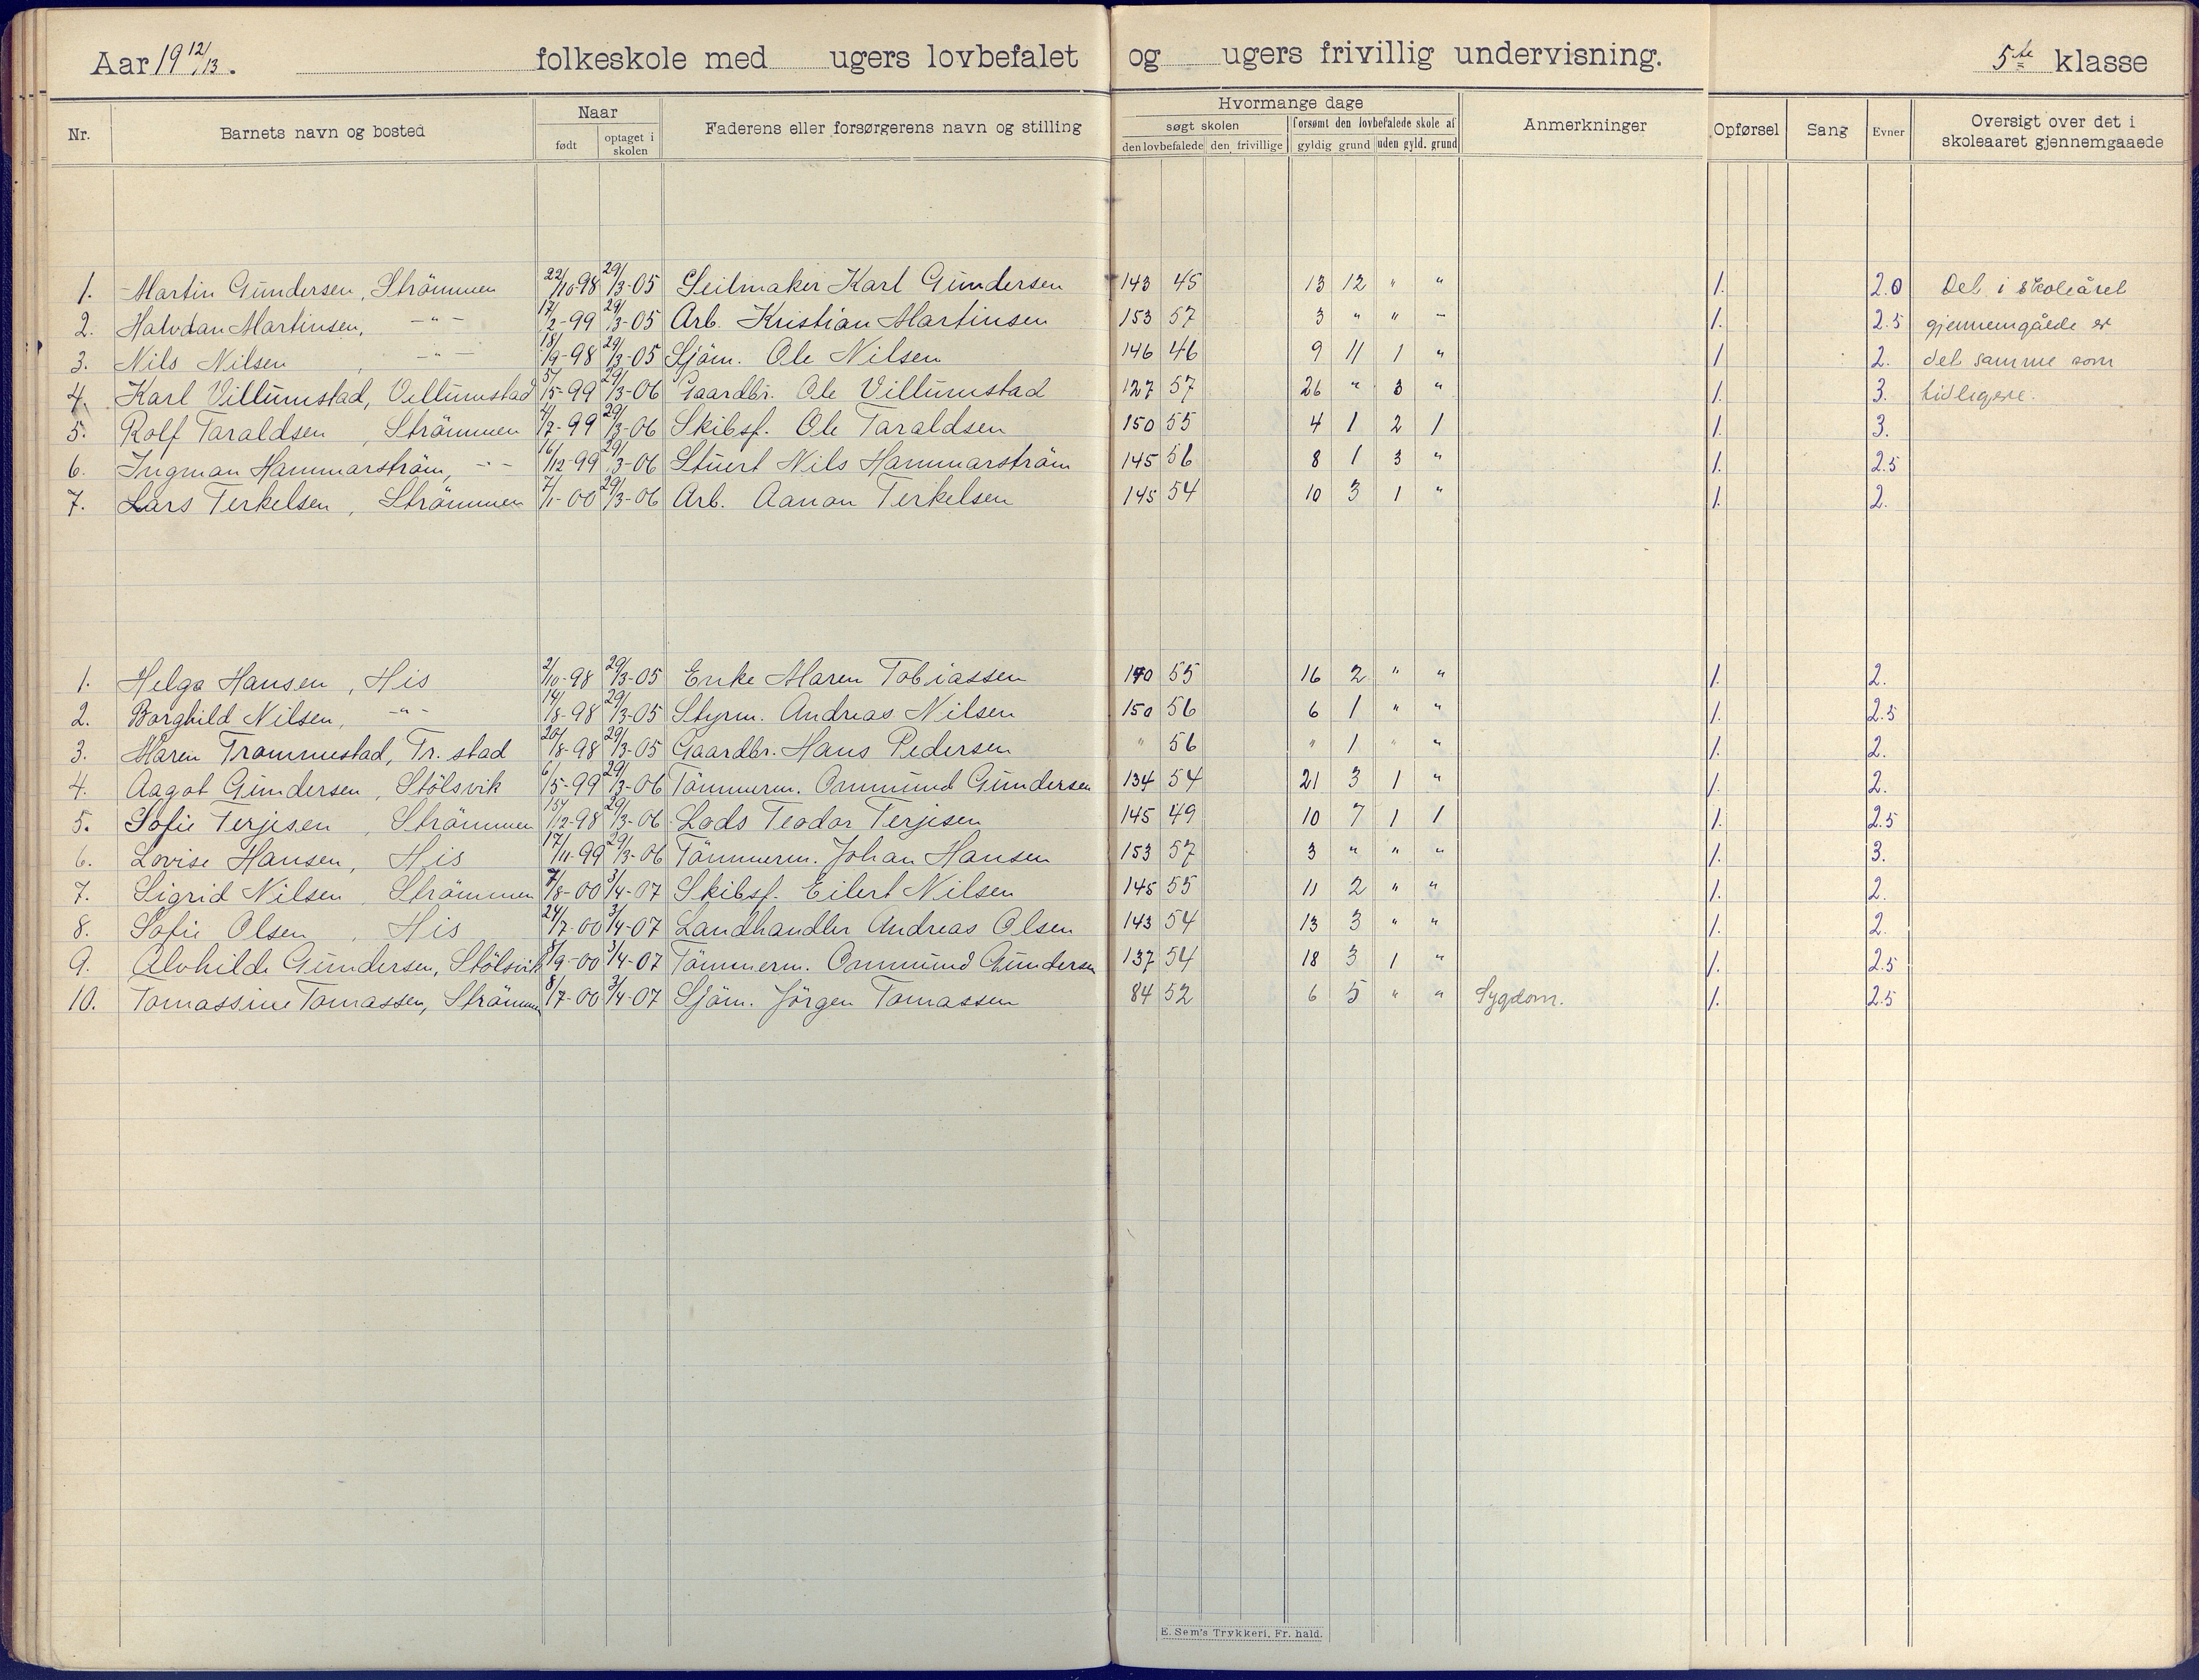 Aar 19 12/13. folkeskole med ugers lovbefalet og ugers frivillig undervisning. 5te klasse
Nr. Barnets navn og bosted Naar Faderens eller forsørgerens navn og stilling Hvormange dage Anmerkninger Opførsel Sang Evner Oversigt over det i skoleaaret gjennemgaaede
født optaget i skolen søgt skolen forsømt den lovbefalede skole af
den lovbefalede den frivillige gyldig grund uden gyld. grund
1. Martin Gundersen, Strömmen 22/10-98 29/3-05 Seilmaker Karl Gundersen 143 45 13 12 " " 1. 2.0 Det i skoleåret
2. Halvdan Martinsen, -"- 17/2-99 29/3-05 Arb. Kristian Martinsen 153 57 3 " " - 1. 2.5 gjennemgåede er
3. Nils Nilsen, -"- 18/9-98 29/3-05 Sjöm. Ole Nilsen 146 46 9 11 1 " 1 2. det samme som
4. Karl Villumstad, Villumstad 5/5-99 29/3-06 Gaardbr. Ole Villumstad 127 57 26 " 3 " 1. 3. tidligere.
5. Rolf Taraldsen, Strömmen 4/7-99 29/3-06 Skibsf. Ole Taraldsen 150 55 4 1 2 1 1. 3.
6. Ingman Hammarström, -"- 16/12-99 29/3-06 Stuert Nils Hammarström 145 56 8 1 3 " 1. 2.5
7. Lars Terkelsen, Strömmen 7/1-00 29/3-06 Arb. Aanon Terkelsen 145 54 10 3 1 " 1. 2.
1. Helga Hansen, His 2/10-98 29/3-05 Enke Maren Tobiassen 140 55 16 2 " " 1. 2.
2. Borghild Nilsen, -"- 14/8-98 29/3-05 Styrm. Andreas Nilsen 150 56 6 1 " " 1. 2.5
3. Maren Trommestad, Tr. stad 20/8-98 29/3-05 Gaardbr. Hans Pedersen " 56 " 1 " " 1. 2.
4. Aagot Gundersen, Stölsvik 6/5-99 29/3-06 Tömmerm. Ommund Gundersen 134 54 21 3 1 " 1. 2.
5. Sofie Terjesen, Strömmen 15/12-98 29/3-06 Lods Teodor Terjesen 145 49 10 7 1 1 1. 2.5
6. Lovise Hansen, His 17/11-99 29/3-06 Tömmerm. Johan Hansen 153 57 3 " " " 1. 3.
7. Sigrid Nilsen, Strömmen 7/8-00 3/4-07 Skibsf. Eilert Nilsen 145 55 11 2 " " 1. 2.
8. Sofie Olsen, His 24/7-00 3/4-07 Landhandler Andreas Olsen 143 54 13 3 " " 1. 2.
9. Alvhilde Gundersen, Stölsvik 8/9-00 3/4-07 Tömmerm. Ommund Gundersen 137 54 18 3 1 " 1. 2.5
10. Tomassine Tomassen, Strömmen 8/7-00 3/4-07 Sjöm. Jörgen Tomassen 84 52 6 5 " " Sygdom. 1. 2.5
E. Sem's Trykkeri, Fr. hald.